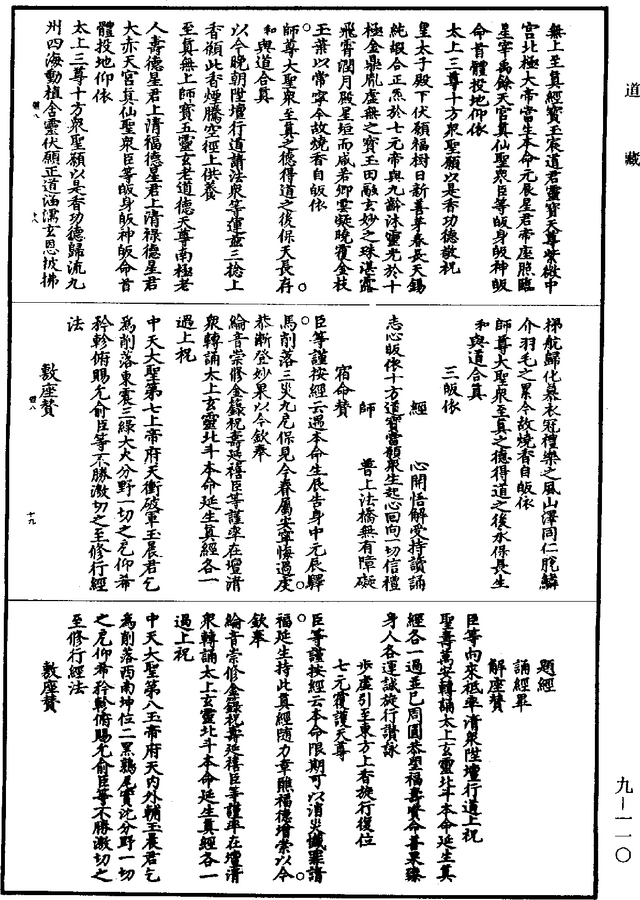 道藏
無上至真經寶玉宸道君靈寶天尊紫微中
宮北極大帝當生本命元辰星君帝座照臨
星宰禹餘天宮真仙聖衆臣等皈身皈神皈
命首體投地仰依
太上三尊十方衆聖願以是香功德敬祝
皇太子殿下伏願福樹日新善芽春長天錫
純嘏合正炁於七元帝與九齡沐靈光於十
極金鼎胤虛無之寶玉田融玄妙之珠湛露
飛霄潤月殿星垣而咸若卿雲凝曉覆金枝
玉葉以常寧今故燒香自皈依
師尊大聖衆至真之德得道之後保天長存
和與道合真
以今晚朝陞壇行道諸法衆等運壺三捻上
香願此香煙騰空徑上供養
至真無上師寶五靈玄老道德天尊南極老
人壽德星君上清福德星君上清祿德星君
大赤天宮真仙聖衆臣等皈身皈神皈命首
體投地仰依
太上三尊十方衆聖願以是香功德歸流九
州四海動植含靈伏願正道涵濡玄恩披拂
梯航歸化慕衣冠禮樂之風山澤同仁脫鱗
介羽毛之累今故燒香自皈依
師尊大聖衆至真之德得道之後永保長生
和與道合真
三皈依
經 心開悟解受持讀誦
志心皈依十方道寶當願衆生起心回向一切信禮
師 普上法橋無有障礙
宿命贊
臣等謹按經云遇本命生辰告身中元辰驛
馬削落三災九厄保見今眷屬安寧悔過虔
恭斷登妙果以今欽奉
綸音崇修金籙祝壽延禧臣等謹率在壇清
衆轉誦太上玄靈北斗本命延生真經各一
過上祝
中天大聖第七上帝府天衝破軍玉晨君乞
為削落東震三綠大火分野一切之厄仰希
矜軫俯賜允俞臣等不勝激切之至修行經
法
數座贊
題經
誦經畢
解座贊
臣等向來祗率清衆陞壇行道上祝
聖壽萬安轉誦太上玄靈北斗本命延生真
經各一過並已周圓恭望福壽實命善果臻
身人各運誠旋行讚詠
步虛引至東方上香旋行復位
七元覆護天尊
臣等謹按經云本命限期可以消災懺罪請
福延生持此真經隨力章醮福德增崇以今
欽奉
綸音崇修金籙祝壽延禧臣等謹率在壇清
衆轉誦太上玄靈北斗本命延生真經各一
過上祝
中天大聖第八玉帝府天內外輔玉晨君乞
為削落西南坤位二黑鶉尾實沈分野一切
之厄仰希矜軫俯賜允俞臣等不勝激切之
至修行經法
數座贊
九—一一〇